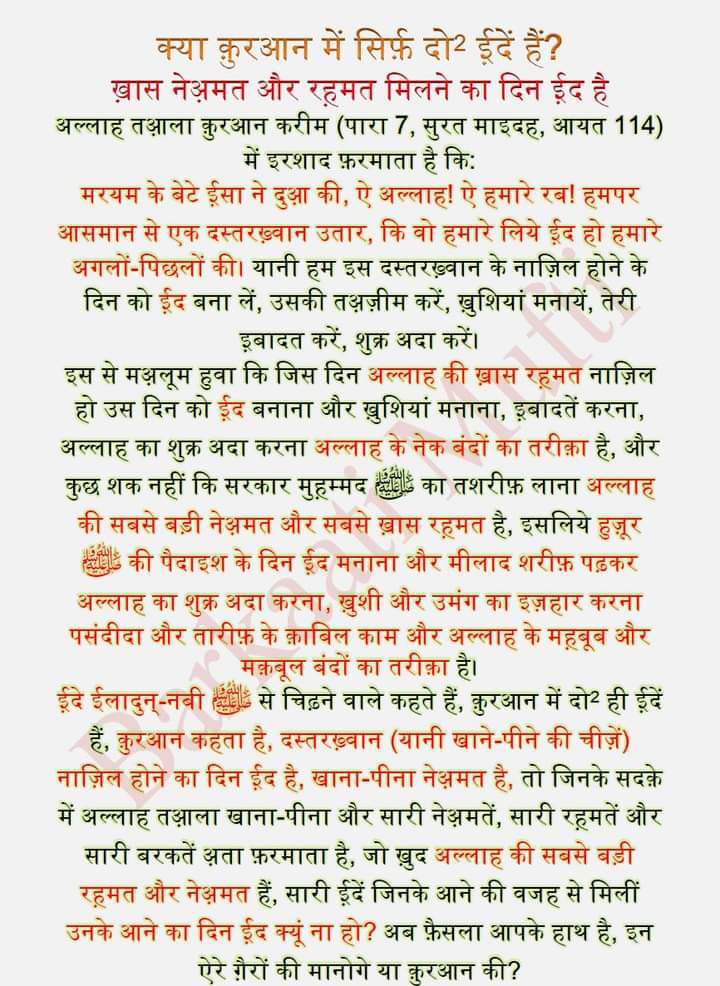 क्या क़ुरआन में सिर्फ़ दो² ई़दें हैं?
ख़ास नेअ़मत और रह़मत मिलने का दिन ई़द है
अल्लाह तआ़ला क़ुरआन करीम (पारा 7, सुरत माइदह, आयत 114)
में इरशाद फ़रमाता है कि:
मरयम के बेटे ई़सा ने दुआ़ की, ऐ अल्लाह! ऐ हमारे रब! हमपर
आसमान से एक दस्तरख़्वान उतार, कि वो हमारे लिये ई़द हो हमारे
अगलों-पिछलों की। यानी हम इस दस्तरख़्वान के नाज़िल होने के
दिन को ई़द बना लें, उसकी तअ़ज़ीम करें, ख़ुशियां मनायें, तेरी
इ़बादत करें, शुक्र अदा करें।
इस से मअ़लूम हुवा कि जिस दिन अल्लाह की ख़ास रह़मत नाज़िल
हो उस दिन को ई़द बनाना और ख़ुशियां मनाना, इ़बादतें करना,
अल्लाह का शुक्र अदा करना अल्लाह के नेक बंदों का तरीक़ा है, और
कुछ शक नहीं कि सरकार मुह़म्मद ﷺ का तशरीफ़ लाना अल्लाह
की सबसे बड़ी नेअ़मत और सबसे ख़ास रह़मत है, इसलिये हुज़ूर
ﷺ की पैदाइश के दिन ई़द मनाना और मीलाद शरीफ़ पढ़कर
अल्लाह का शुक्र अदा करना, ख़ुशी और उमंग का इज़हार करना
पसंदीदा और तारीफ़ के क़ाबिल काम और अल्लाह के मह़बूब और
मक़बूल बंदों का तरीक़ा है।
ई़दे ई़लादुन्-नबी ﷺ से चिढ़ने वाले कहते हैं, क़ुरआन में दो² ही ई़दें
हैं, क़ुरआन कहता है, दस्तरख़्वान (यानी खाने-पीने की चीज़ें)
नाज़िल होने का दिन ई़द है, खाना-पीना नेअ़मत है, तो जिनके सदक़े
में अल्लाह तआ़ला खाना-पीना और सारी नेअ़मतें, सारी रह़मतें और
सारी बरकतें अ़ता फ़रमाता है, जो ख़ुद अल्लाह की सबसे बड़ी
रह़मत और नेअ़मत हैं, सारी ई़दें जिनके आने की वजह से मिलीं
उनके आने का दिन ई़द क्यूं ना हो? अब फ़ैसला आपके हाथ है, इन
ऐरे ग़ैरों की मानोगे या क़ुरआन की?
Barkaati Mufti